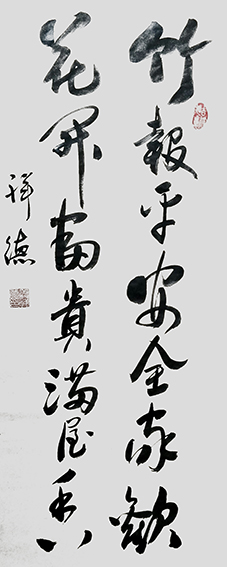 竹報平安全家歡
花開富貴滿屋香
祥德